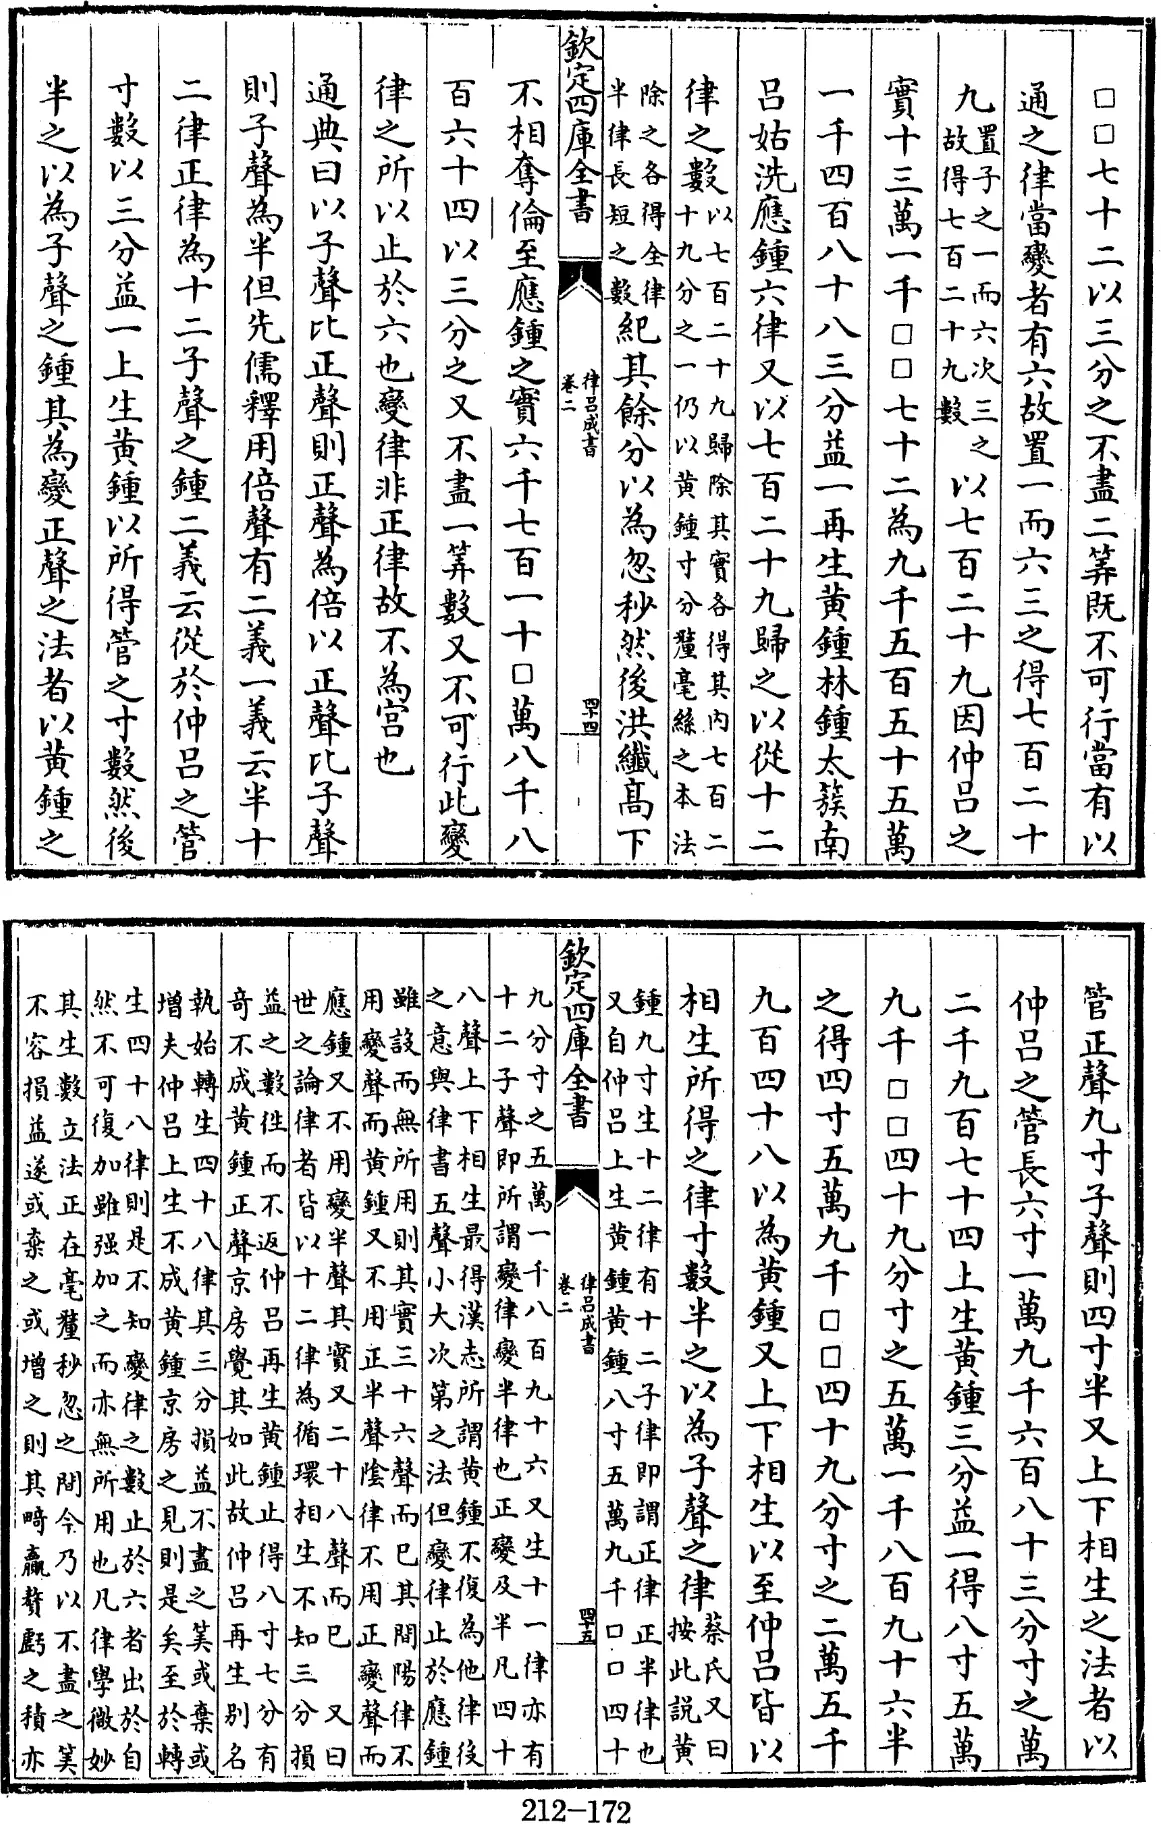 □□七十二以三分之不盡二筭既不可行當有以
通之律當變者有六故置一而六三之得七百二十
九置子之一而六次三之故得七百二十九數以七百二十九因仲呂之
實十三萬一千□□七十二為九千五百五十五萬
一千四百八十八三分益一再生黃鍾林鍾太蔟南
呂姑洗應鍾六律又以七百二十九歸之以從十二
律之數以七百二十九歸除其實各得其內七百二十九分之一仍以黃鍾寸分釐毫絲之本法
除之各得全律半律長短之數紀其餘分以為忽秒然後洪纖髙下
欽定四庫全書
律呂成書
卷二
四十四
不相奪倫至應鍾之實六千七百一十□萬八千八
百六十四以三分之又不盡一筭數又不可行此變
律之所以止於六也變律非正律故不為宮也
通典曰以子聲比正聲則正聲為倍以正聲比子聲
則子聲為半但先儒釋用倍聲有二義一義云半十
二律正律為十二子聲之鍾二義云從於仲呂之管
寸數以三分益一上生黃鍾以所得管之寸數然後
半之以為子聲之鍾其為變正聲之法者以黃鍾之
管正聲九寸子聲則四寸半又上下相生之法者以
仲呂之管長六寸一萬九千六百八十三分寸之萬
二千九百七十四上生黃鍾三分益一得八寸五萬
九千□□四十九分寸之五萬一千八百九十六半
之得四寸五萬九千□□四十九分寸之二萬五千
九百四十八以為黃鍾又上下相生以至仲呂皆以
相生所得之律寸數半之以為子聲之律蔡氏又曰按此説黃
鍾九寸生十二律有十二子律即謂正律正半律也
又自仲呂上生黃鍾黃鍾八寸五萬九千□□四十
欽定四庫全書
律呂成書
卷二
四十五
九分寸之五萬一千八百九十六又生十一律亦有
十二子聲即所謂變律變半律也正變及半凡四十
八聲上下相生最得漢志所謂黃鍾不復為他律後
之意與律書五聲小大次第之法但變律止於應鍾
雖設而無所用則其實三十六聲而已其間陽律不
用變聲而黃鍾又不用正半聲陰律不用正變聲而
應鍾又不用變半聲其實又二十八聲而已　又曰
世之論律者皆以十二律為循環相生不知三分損
益之數徃而不返仲呂再生黃鍾止得八寸七分有
奇不成黃鍾正聲京房覺其如此故仲呂再生別名
執始轉生四十八律其三分損益不盡之筭或棄或
增夫仲呂上生不成黃鍾京房之見則是矣至於轉
生四十八律則是不知變律之數止於六者出於自
然不可復加雖强加之而亦無所用也凡律學微妙
其生數立法正在毫釐秒忽之間今乃以不盡之筭
不容損益遂或棄之或增之則其畸贏贅虧之積亦
212-172